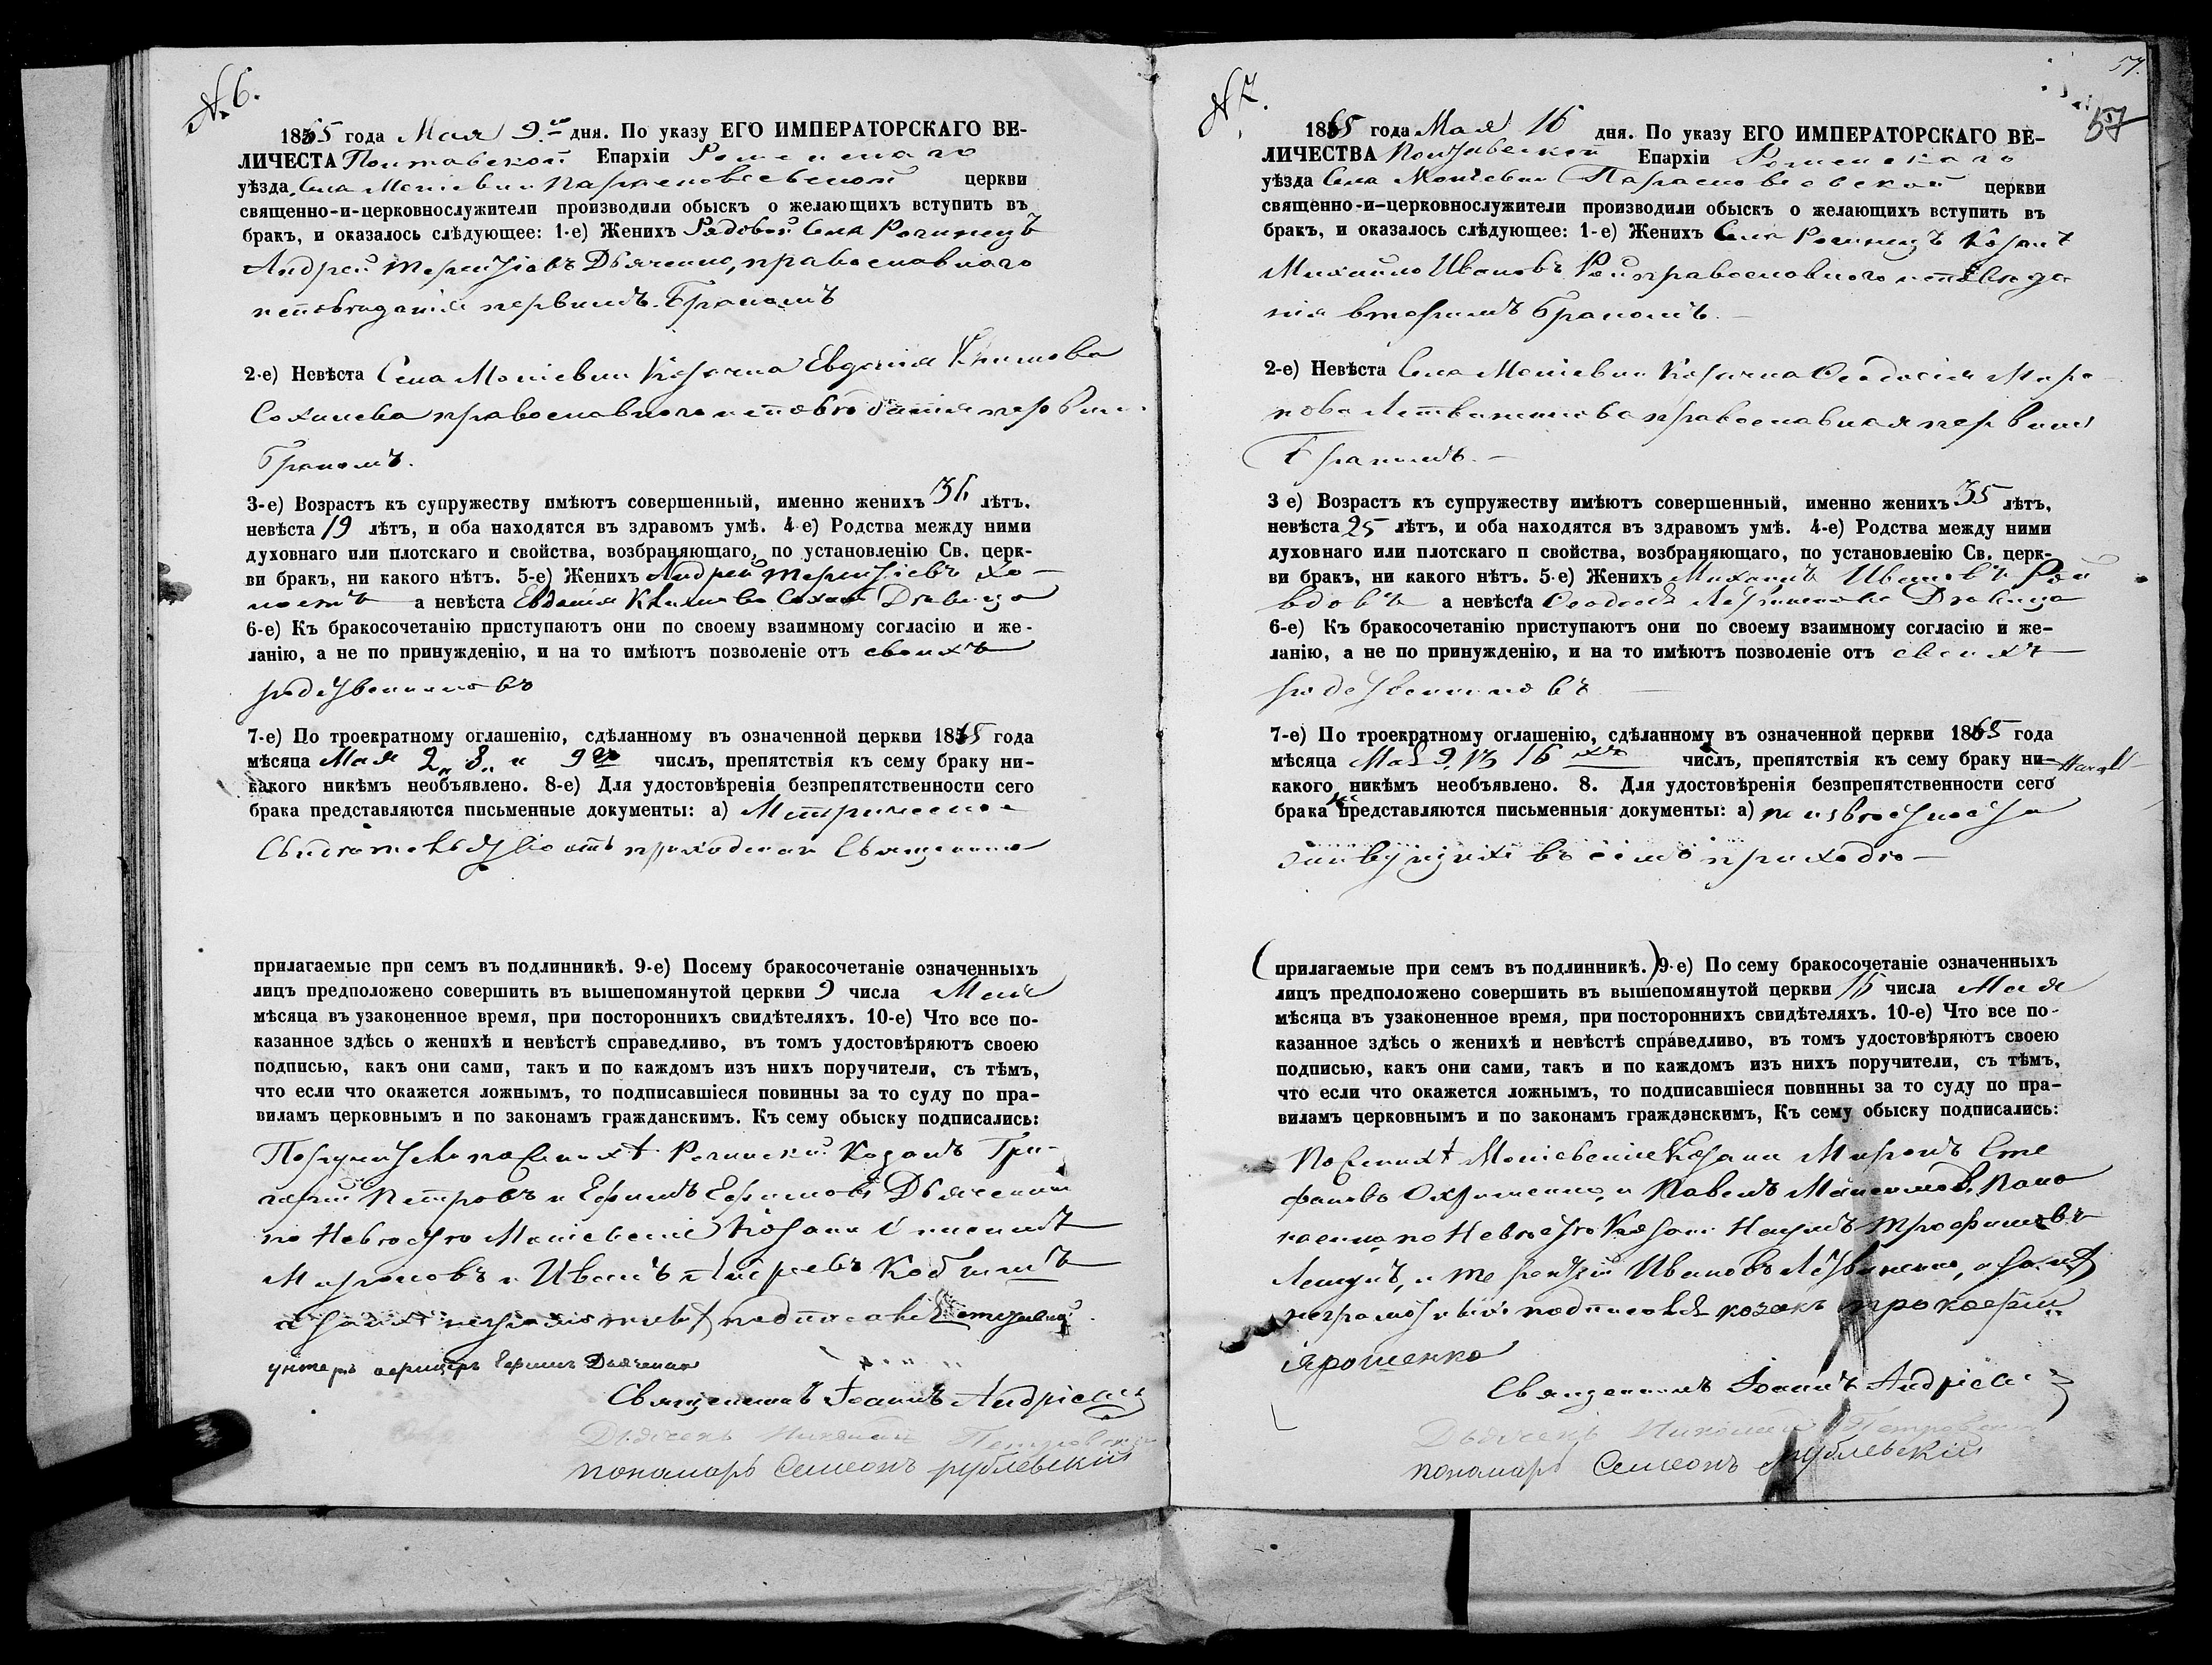 № 6.
1865 года Мая 9го дня. По указу ЕГО ИМПЕРАТОРСКАГО ВЕ-
ЛИЧЕСТА Полтавской Епархіи Роменскаго
уѣзда Села Парасковеевской церкви
священно-и-церковнослужители производили обыскъ о желающихъ вступить въ
бракъ, и оказалось слѣдующее: 1-е) Женихъ Рядовой Села Рогинецъ
Андрей Терентіевъ Дьяченко, православнаго
исповѣданія первимъ бракомъ
2-е) Невѣста Села Козачка Евдокія Климова
православнаго исповѣданія первим
бракомъ.
3-е) Возрастъ къ супружеству имѣютъ совершенный, именно женихъ лѣтъ,
невѣста 19 лѣтъ, и оба находятся въ здравомъ умѣ. 4-е) Родства между ними
духовнаго или плотскаго и свойства, возбраняющаго, по установленію Св. церк-
ви бракъ, ни какого нѣтъ. 5-е) Женихъ Андрей Терентіевъ хо-
лостъ а невѣста Евдокія Климова Дѣвица
6-е) Къ бракосочетанію приступаютъ они по своему взаимному согласію и же-
ланію, а не по принужденію, и на то имѣютъ позволеніе отъ своихъ
родственниковъ
7-е) По троекратному оглашенію, сдѣланному въ означенной церкви 1865 года
мѣсяца Мая 2, 8, и 9го числъ, препятствія къ сему браку ни-
какого никѣмъ необъявлено. 8-е) Для удостовѣренія безпрепятственности сего
брака представляются письменные документы: а) Метрическое
Свидѣтельство отъ приходскаго Священника
прилагаемые при семъ въ подлинникѣ. 9-е) Посему бракосочетаніе означенныхъ
лицъ предположено совершить въ вышепомянутой церкви 9 числа Мая
мѣсяца въ узаконенное время, при постороннихъ свидѣтеляхъ. 10-е) Что все по-
казанное здѣсь о женихѣ и невѣстѣ справедливо, въ томъ удостовѣряютъ своею
подписью, какъ они сами, такъ и по каждомъ изъ нихъ поручители, съ тѣмъ,
что если что окажется ложнымъ, то подписавшіеся повинны за то суду по пра-
виламъ церковнымъ и по законамъ гражданскимъ. Къ сему обыску подписались:
Поручители по Женихѣ Рогинскій Козакъ Гри-
горій Петровъ и Ефимъ Ефимовъ Дьяченки
по Невѣстѣ Козаки
Мироновъ и Иванъ
а за ихъ неграмотныхъ подписался отставной
унтеръ офицеръ Ефимъ Дьяченко
Священникъ Іоаннъ Андріевъ
Дьячекъ Николай Петровскій
пономарь Симеонъ рублевскій
№ 7.
57.
57
1865 года Мая 16 дня. По указу ЕГО ИМПЕРАТОРСКАГО ВЕ-
ЛИЧЕСТВА Полтавской Епархіи Роменскаго
уѣзда Села Парасковеевской церкви
священно-и-церковнослужители производили обыскъ о желающихъ вступить въ
бракъ, и оказалось слѣдующее: 1-е) Женихъ Села Рогинецъ Козакъ
Михайло Ивановъ Рой православнаго исповѣда
нія вторимъ бракомъ.
2-е) Невѣста Села Козачка Феодосія Миро-
нова православная первим
бракомъ.
3 е) Возрастъ къ супружеству имѣютъ совершенный, именно женихъ 35 лѣтъ,
невѣста 25 лѣтъ, и оба находятся въ здравомъ умѣ. 4-е) Родства между ними
духовнаго или плотскаго п свойства, возбраняющаго, по установленію Св. церк-
ви бракъ, ни какого нѣтъ. 5-е) Женихъ Михаилъ Ивановъ Рой
вдовъ а невѣста Дѣвица
6-е) Къ бракосочетанію приступаютъ они по своему взаимному согласію и же-
ланію, а не по принужденію, и на то имѣютъ позволеніе отъ своихъ
родственниковъ
7-е) По троекратному оглашенію, сдѣланному въ означенной церкви 1865 года
мѣсяца Мая 9, 13, 16хъ числъ, препятствія къ сему браку ни-
какого никѣмъ необъявлено. 8. Для удостовѣренія безпрепятственности сего
брака не представляются письменныя документы: а) по извѣстности
живущихъ въ семъ приходѣ
(прилагаемые при семъ въ подлинникѣ.) 9-е) По сему бракосочетаніе означенныхъ
лицъ предположено совершить въ вышепомянутой церкви 16 числа Мая
мѣсяца въ узаконенное время, при постороннихъ свидѣтеляхъ. 10-е) Что все по-
казанное здѣсь о женихѣ и невѣстѣ справедливо, въ томъ удостовѣряютъ своею
подписью, какъ они сами, такъ и по каждомъ изъ нихъ поручители, съ тѣмъ,
что если что окажется ложнымъ, то подписавшіеся повинны за то суду по пра-
виламъ церковнымъ и по законамъ гражданскимъ, Къ сему обыску подписались:
По Женихѣ Козаки Миронъ Сте
фановъ и Павелъ
по Невѣстѣ Козаки Наумъ Трофимовъ
и Терентій Ивановъ а за ихъ
неграмотныхъ подписался козакъ прокофій
ярошенко
Священникъ Іоаннъ Андріевъ
Дьячекъ Николай Петровскій
пономарь Симеонъ рублевскій